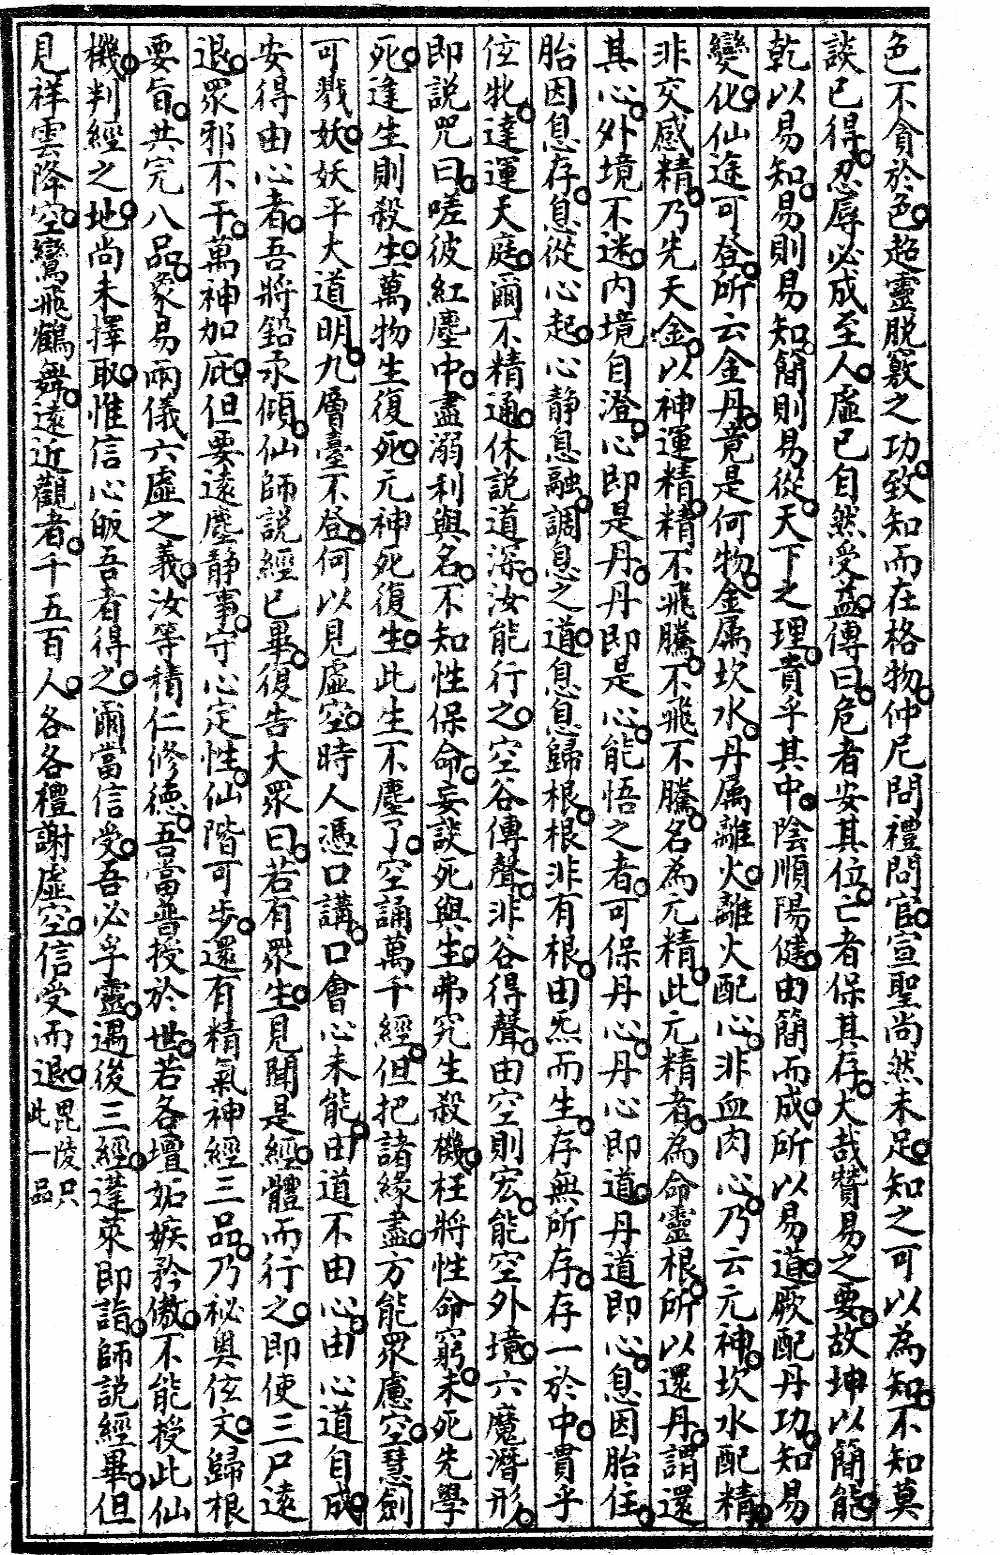 色不貪於色超靈脱竅之功致知而在格物仲尼問禮問官宣聖尚然未足知之可以為知不知莫
談已得忍辱必成至人虛已自然受益傳曰危者安其位亡者保其存大哉贊易之要故坤以簡能
乾以易知易則易知簡則易從天下之理貴乎其中陰順陽健由簡而成所以易道厥配丹功知易
變化仙途可登所云金丹竟是何物金属坎水丹属離火離火配心非血肉心乃云元神坎水配精
非交感精乃先天金以神運精精不飛騰不飛不騰名為元精此元精者為命靈根所以還丹謂還
其心外境不迷内境自澄心即是丹丹即是心能悟之者可保丹心丹心即道丹道即心息因胎住
胎因息存息從心起心靜息融調息之道息息歸根根非有根由炁而生存無所存存一於中貫乎
位牝達運天庭爾不精通休説道深汝能行之空谷傳聲非谷得聲由空則宏能空外境六魔潛形
即説咒曰嗟彼紅塵中盡溺利與名不知性保命妄談死與生弗究生殺機枉將性命窮未死先學
死逢生則殺生萬物生復死元神死復生此生不塵了空誦萬千經但把諸緣盡方能眾慮空慧劍
可戮妖妖平大道明九層臺不登何以見虛空時人憑口講口會心未能由道不由心由心道自成
安得由心者吾將鉛汞傾仙師説經已畢復告大眾曰若有眾生見聞是經體而行之即使三尸遠
退眾邪不干萬神加庇但要遠塵靜事守心定性仙階可步還有精氣神經三品乃祕奥伭文歸根
要旨共完八品象易兩儀六虛之義汝等積仁修德吾當普授於世若各壇妬嫉矜傲不能授此仙
機判經之地尚未擇取惟信心皈吾者得之爾當信受吾必孚靈遇後三經蓬萊即詣師説經畢但
見祥雲降空鸞飛鶴舞遠近觀者千五百人各各禮謝虛空信受而退毘陵只
此一品